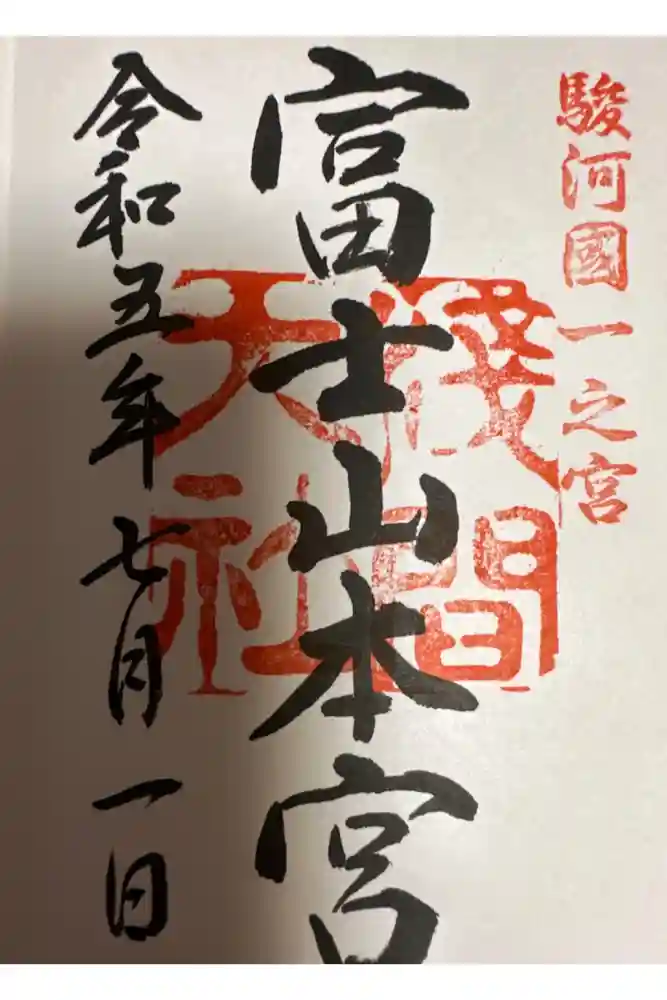 駿河國一之宮
富士山本宮
淺間
大社
令和五年七月一日